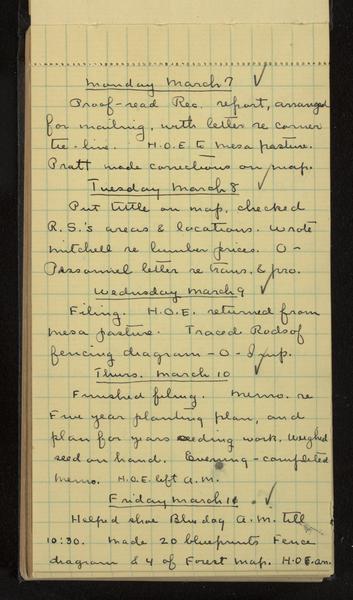 Monday March 7
Proof-read Rec. report, arranged
for mailing, with letter re corner
tie-line. H.O.E to mesa pasture.
Pratt made corrections on map.
Tuesday March 8
Put title on map, checked
R.S.'s areas & locations. Wrote
Mitchell re lumber prices. O-
Personnel letter re trans. & pro.
Wednesday March 9
Filing. H.O.E. returned from
mesa pasture. Traced Rodsof
fencing diagram - O -
Thurs. March 10
Finished filing. Memo. re
Five year planting plan, and
plan for years seeding work. Weighed
seed on hand. Evening - completed
memo. H.O.E. left A.M.
Friday March 11
Helped shoe Blue dog A.M. till
10:30. Made 20 blueprints Fence
diagram & 4 of Forest map. H.O.E. am.